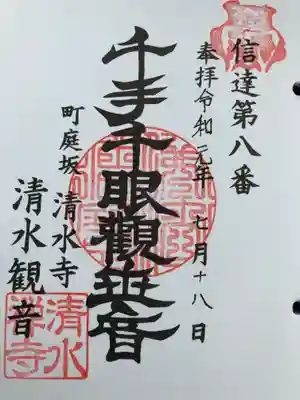 信達第八番
奉拝令和元年 七月十八日
千手千眼觀世音
町庭坂 清水寺
清水観音
清水
禅寺